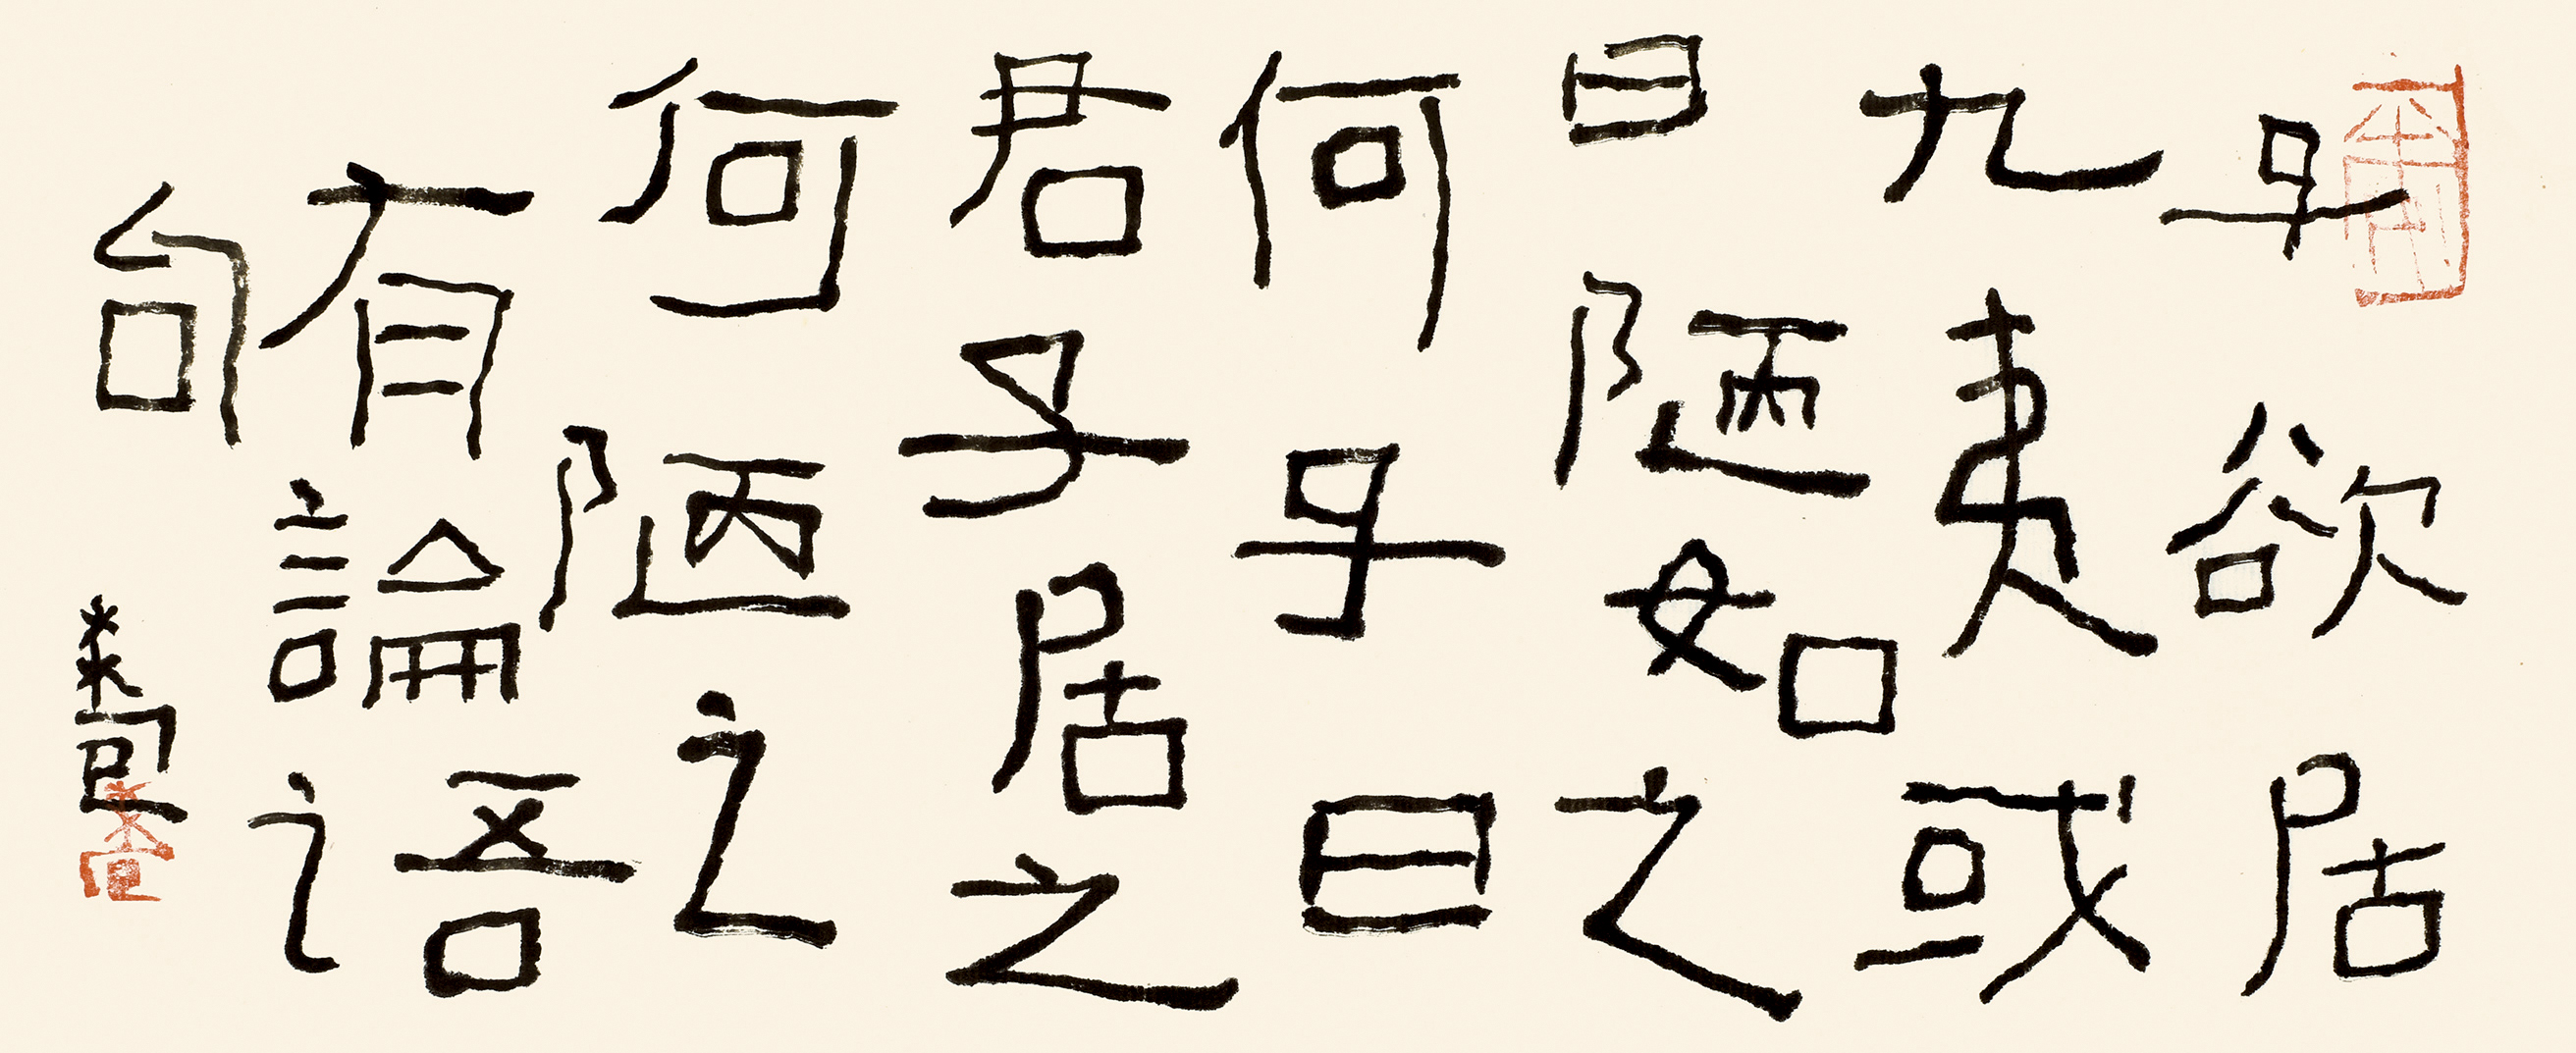 子欲居
九夷或
曰陋如之
何子曰
君子居之
何陋之
有論語
句